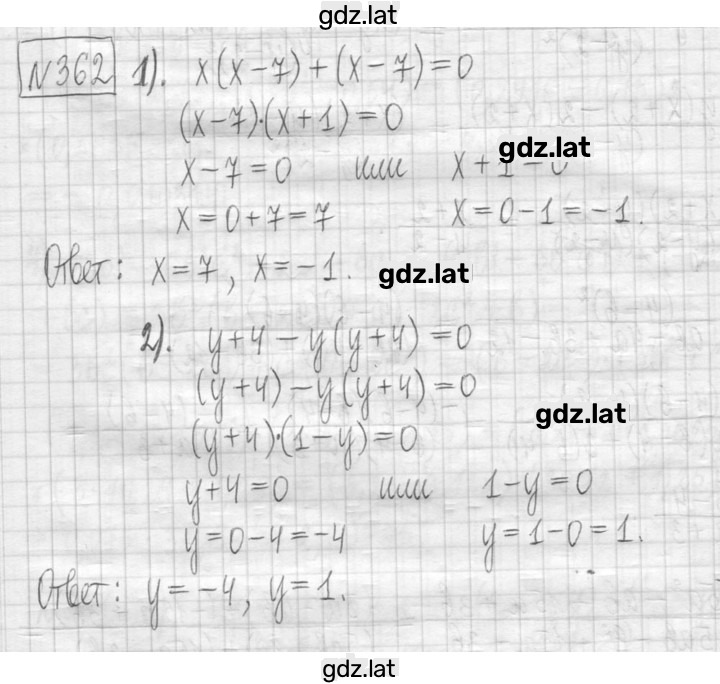 gdz.lat
№362 1). x(x-7)+(x-7)=0
(x-7)·(x+1)=0
gdz.lat
x-7=0 или x+1=0
x=0+7=7 x=0-1=-1.
Ответ: x=7, x=-1.
gdz.lat
2). y+4-y(y+4)=0
(y+4)-y(y+4)=0
gdz.lat
(y+4)·(1-y)=0
y+4=0 или 1-y=0
y=0-4=-4 y=1-0=1.
Ответ: y=-4, y=1.
gdz.lat